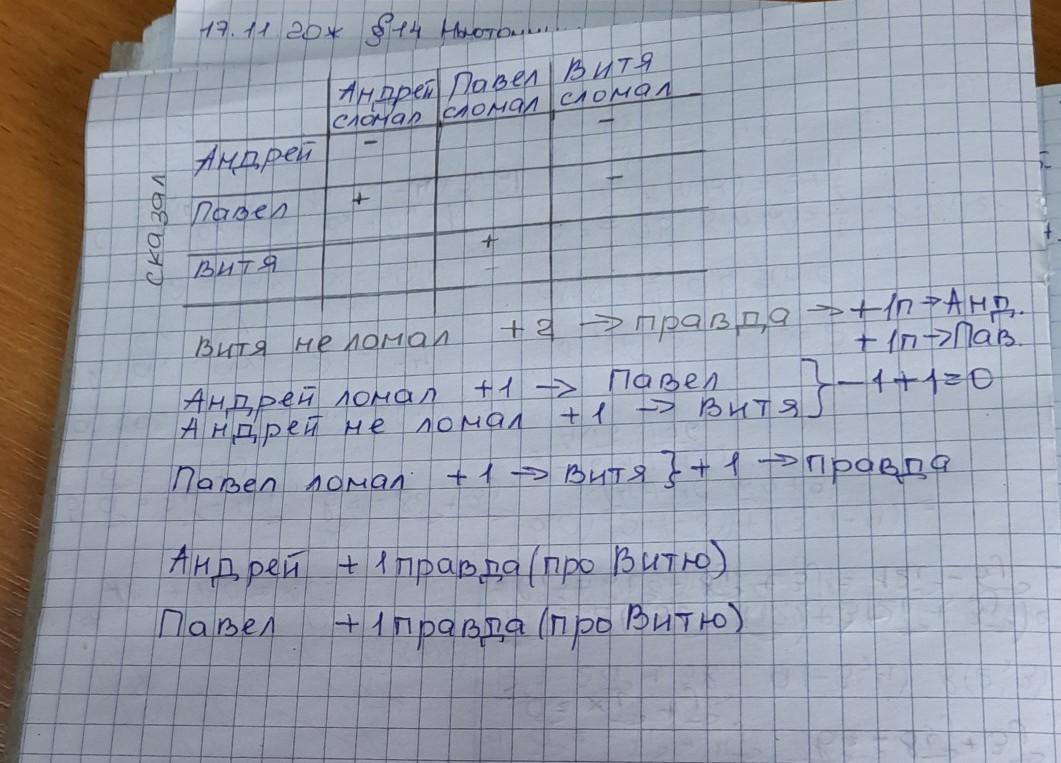 17.11 20ж §14
Андрей сломал Павел сломал Витя сломал
сказал
Андрей - -
Павел + -
Витя +
Витя не ломал +2 → правда → +1п→Анд.
+1п→Пав.
Андрей ломал +1 → Павел } -1+1=0
Андрей не ломал +1 → Витя
Павел ломал +1 → Витя } +1 → правда
Андрей +1правда (про Витю)
Павел +1правда (про Витю)